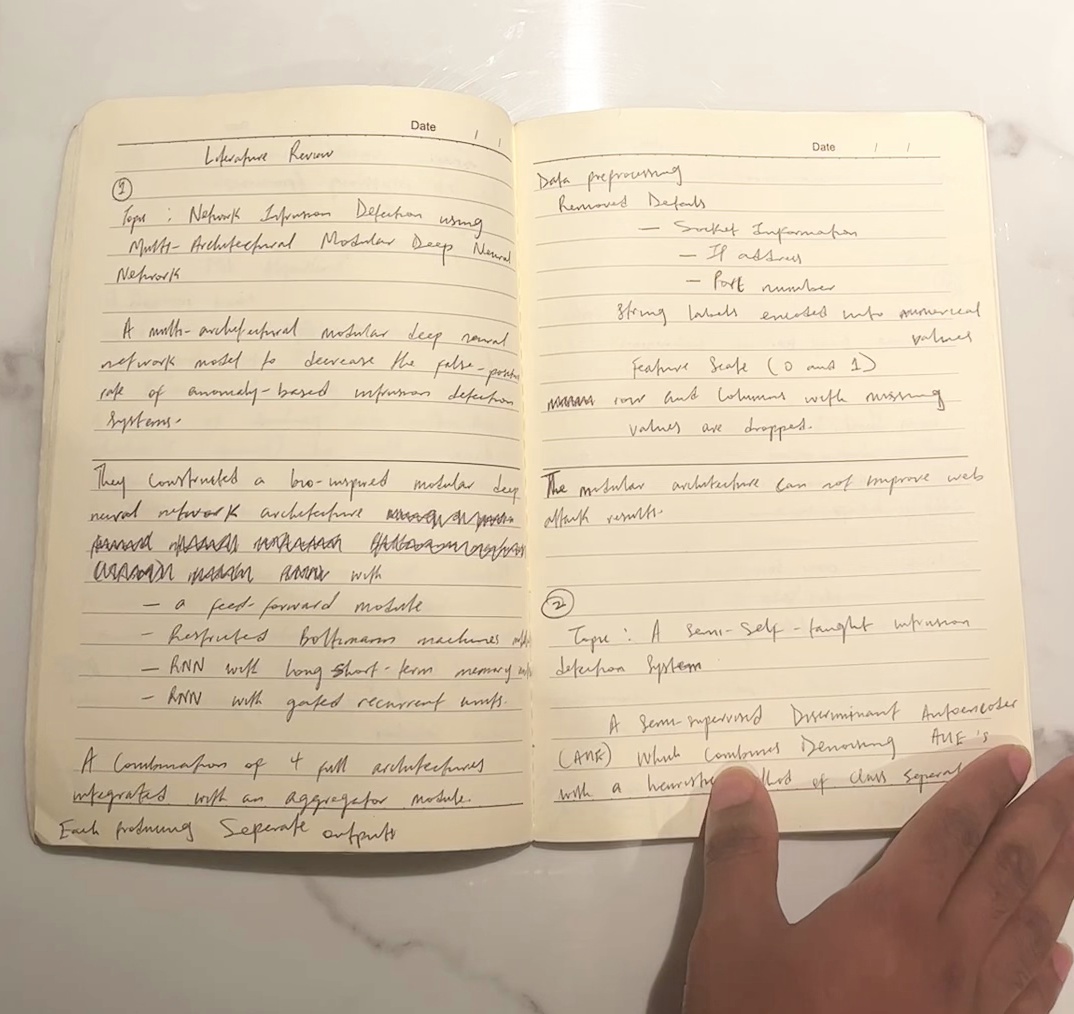 Date / /
Literature Review
1
Topic : Network Intrusion Detection using
Multi-Architectural Modular Deep Neural
Network
A multi-architectural modular deep neural
network model to decrease the false-positive
rate of anomaly-based intrusion detection
systems.
They constructed a bio-inspired modular deep
neural network architecture
with
- a feed-forward module
- Restricted Boltzmann machines
- RNN with long short-term memory
- RNN with gated recurrent units.
A Combination of 4 full architectures
integrated with an aggregator module.
Each producing Seperate outputs
Date / /
Data preprocessing
Removed Details
- Socket Information
- IP address
- Port number
String labels encoded into numerical
values
Feature Scale (0 and 1)
row and columns with missing
values are dropped.
The modular architecture can not improve web
attack results.
2
Topic : A semi-self-taught intrusion
detection system
A Semi-supervised Discriminant Autoencoder
Which Combines Denoising
with a of class